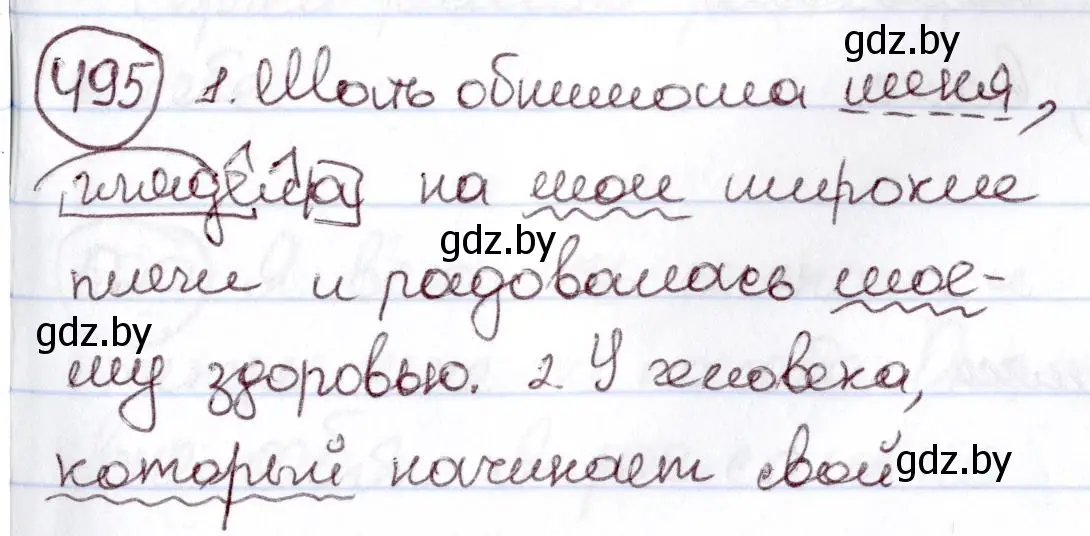 495 1. Мать обнимала меня, gdz.by
глядела на мои широкие
gdz.by
плечи и радовалась мое-
gdz.by
му здоровью. 2. У человека,
который начинает свой gdz.by